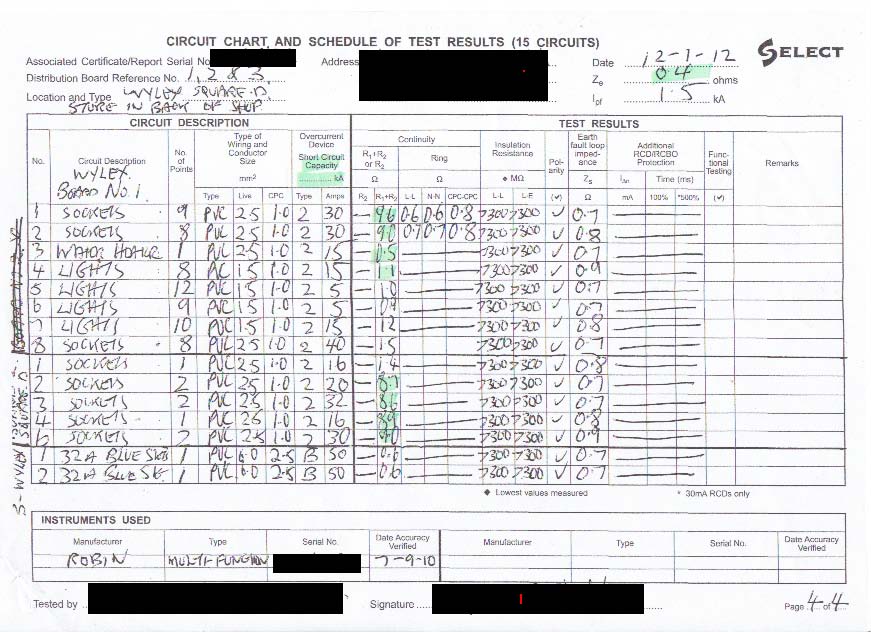 CIRCUIT CHART, AND SCHEDULE OF TEST RESULTS (15 CIRCUITS)
SELECT
Associated Certificate/Report Serial No
Address
Date 12-1-12
Distribution Board Reference No. 1, 2 & 3
Ze 0.4 ohms
Location and Type WYLEX SQUARE.D.
STORE IN BACK OF SHOP
Ipf 1.5 kA
CIRCUIT DESCRIPTION
TEST RESULTS
No.
Circuit Description
WYLEX
BOARD NO.1.
No. of Points
Type of Wiring and Conductor Size
mm²
Type Live CPC
Overcurrent Device
Short Circuit Capacity
kA
Type Amps
Continuity
R1+R2 or R2
Ω
R2 R1+R2
Ring
Ω
L-L N-N CPC-CPC
Insulation Resistance
◆ MΩ
L-L L-E
Polarity
(✓)
Earth fault loop impedance
Zs
Ω
Additional RCD/RCBO Protection
IΔn Time (ms)
mA 100% *500%
Functional Testing
(✓)
Remarks
1 SOCKETS 9 PVC 2.5 1.0 2 30 — .96 0.6 0.6 0.8 >300 >300 ✓ 0.7
2 SOCKETS 8 PVC 2.5 1.0 2 30 — .90 0.7 0.7 0.8 >300 >300 ✓ 0.8
3 WATER HEATER 1 PVC 2.5 1.0 2 15 — 0.5 >300 >300 ✓ 0.7
4 LIGHTS 8 PVC 1.5 1.0 2 15 — 1.1 >300 >300 ✓ 0.9
5 LIGHTS 12 PVC 1.5 1.0 2 5 — 1.0 >300 >300 ✓ 0.7
6 LIGHTS 9 PVC 1.5 1.0 2 5 — >300 >300 ✓ 0.7
7 LIGHTS 10 PVC 1.5 1.0 2 15 — 1.2 >300 >300 ✓ 0.8
8 SOCKETS 8 PVC 2.5 1.0 2 40 — 1.5 >300 >300 ✓ 0.7
1 SOCKETS 1 PVC 2.5 1.0 2 16 — 1.4 >300 >300 ✓ 0.8
2 SOCKETS 2 PVC 2.5 1.0 2 20 — >300 >300 ✓ 0.7
3 SOCKETS 2 PVC 2.5 1.0 2 32 — >300 >300 ✓ 0.7
4 SOCKETS 1 PVC 2.5 1.0 2 16 — >300 >300 ✓ 0.8
SOCKETS 2 PVC 2.5 1.0 2 30 — >300 >300 ✓ 0.9
1 32A BLUE SKT 1 PVC 6.0 2.5 B 50 — 0.6 >300 >300 ✓ 0.7
2 32A BLUE SKT. 1 PVC 6.0 2.5 B 50 — 0.6 >300 >300 ✓ 0.7
3-WYLEX SQUARE.D
◆ Lowest values measured
* 30mA RCDs only
INSTRUMENTS USED
Manufacturer Type Serial No. Date Accuracy Verified Manufacturer Type Serial No. Date Accuracy Verified
ROBIN MULTI-FUNCTION 7-9-10
Tested by
Signature
Page 4 of 4